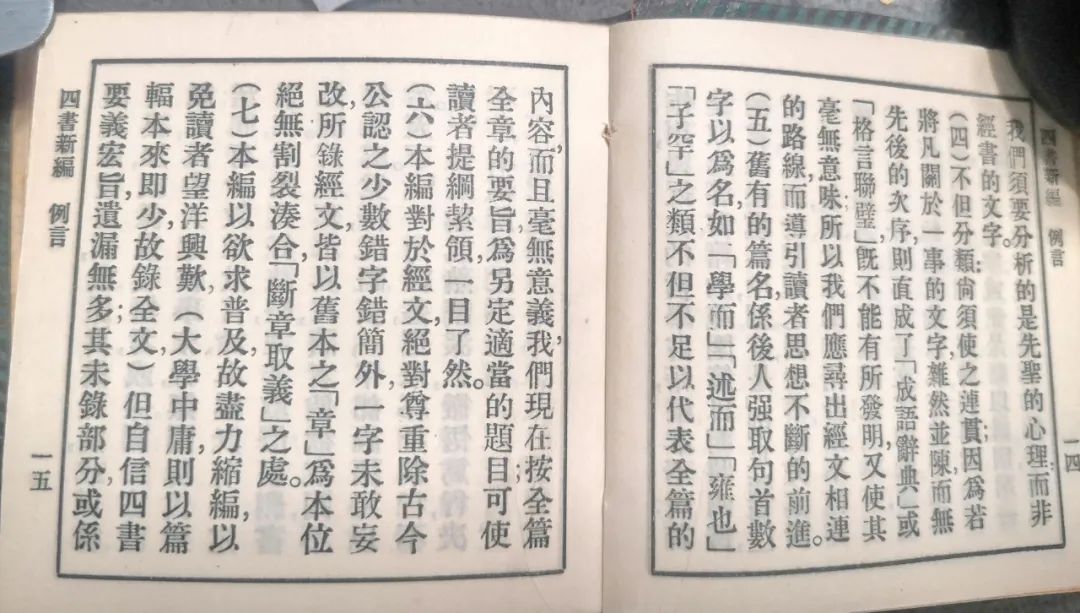 四書新編 例言
一四
我們須要分析的是先聖的心理，而非
經書的文字。
（四）不但分類，尙須使之連貫；因爲若
將凡關於一事的文字，雜然並陳，而無
先後的次序，則直成了「成語辭典」或
「格言聯璧」，旣不能有所發明，又使其
毫無意味，所以我們應尋出經文相連
的路線，而導引讀者思想不斷的前進。
（五）舊有的篇名，係後人强取句首數
字以爲名，如「學而」「述而」「雍也」
「子罕」之類，不但不足以代表全篇的
內容，而且毫無意義，我們現在按全篇
全章的要旨，爲另定適當的題目；可使
讀者提綱絜領，一目了然。
（六）本編對於經文，絕對尊重，除古今
公認之少數錯字錯簡外，一字未敢妄
改，所錄經文，皆以舊本之「章」爲本位，
絕無割裂湊合「斷章取義」之處。
（七）本編以欲求普及，故盡力縮編，以
免讀者望洋興歎，（大學中庸，則以篇
輻本來即少，故錄全文）但自信四書
要義宏旨，遺漏無多；其未錄部分，或係
四書新編 例言
一五